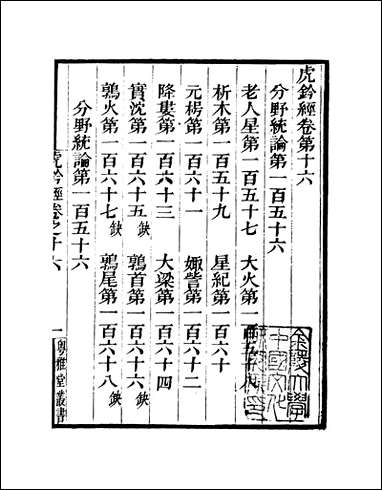 虎鈐經卷第十六
分野統論第一百五十六
老人星第一百五十七　大火第一百五十八
析木第一百五十九　星紀第一百六十
元枵第一百六十一　娵訾第一百六十二
降婁第一百六十三　大梁第一百六十四
實沈第一百六十五缺　鶉首第一百六十六缺
鶉火第一百六十七缺　鶉尾第一百六十八缺
分野統論第一百五十六
虎鈐經卷之十六　一　粵雅堂叢書
金陵大學
中國文化
研究所